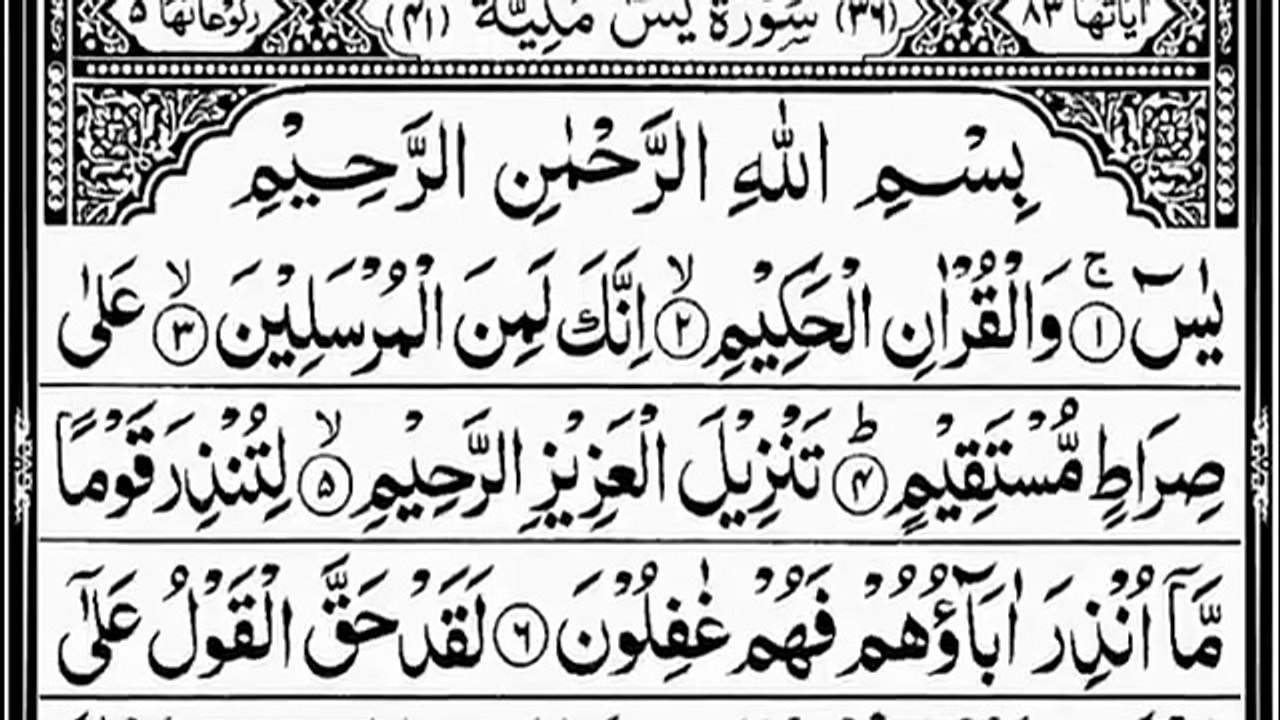 اٰيَاتُهَا ٨٣ (٣٦) سُوْرَةُ يٰسٓ مَكِّيَّةٌ (٤١) رُكُوْعَاتُهَا ۵
بِسْمِ اللّٰهِ الرَّحْمٰنِ الرَّحِيْمِ
يٰسٓ ۚ ﴿۱﴾ وَالْقُرْاٰنِ الْحَكِيْمِ ۙ ﴿۲﴾ اِنَّكَ لَمِنَ الْمُرْسَلِيْنَ ۙ ﴿۳﴾ عَلٰى
صِرَاطٍ مُّسْتَقِيْمٍ ؕ ﴿۴﴾ تَنْزِيْلَ الْعَزِيْزِ الرَّحِيْمِ ۙ ﴿۵﴾ لِتُنْذِرَ قَوْمًا
مَّاۤ اُنْذِرَ اٰبَآؤُهُمْ فَهُمْ غٰفِلُوْنَ ﴿۶﴾ لَقَدْ حَقَّ الْقَوْلُ عَلٰۤى